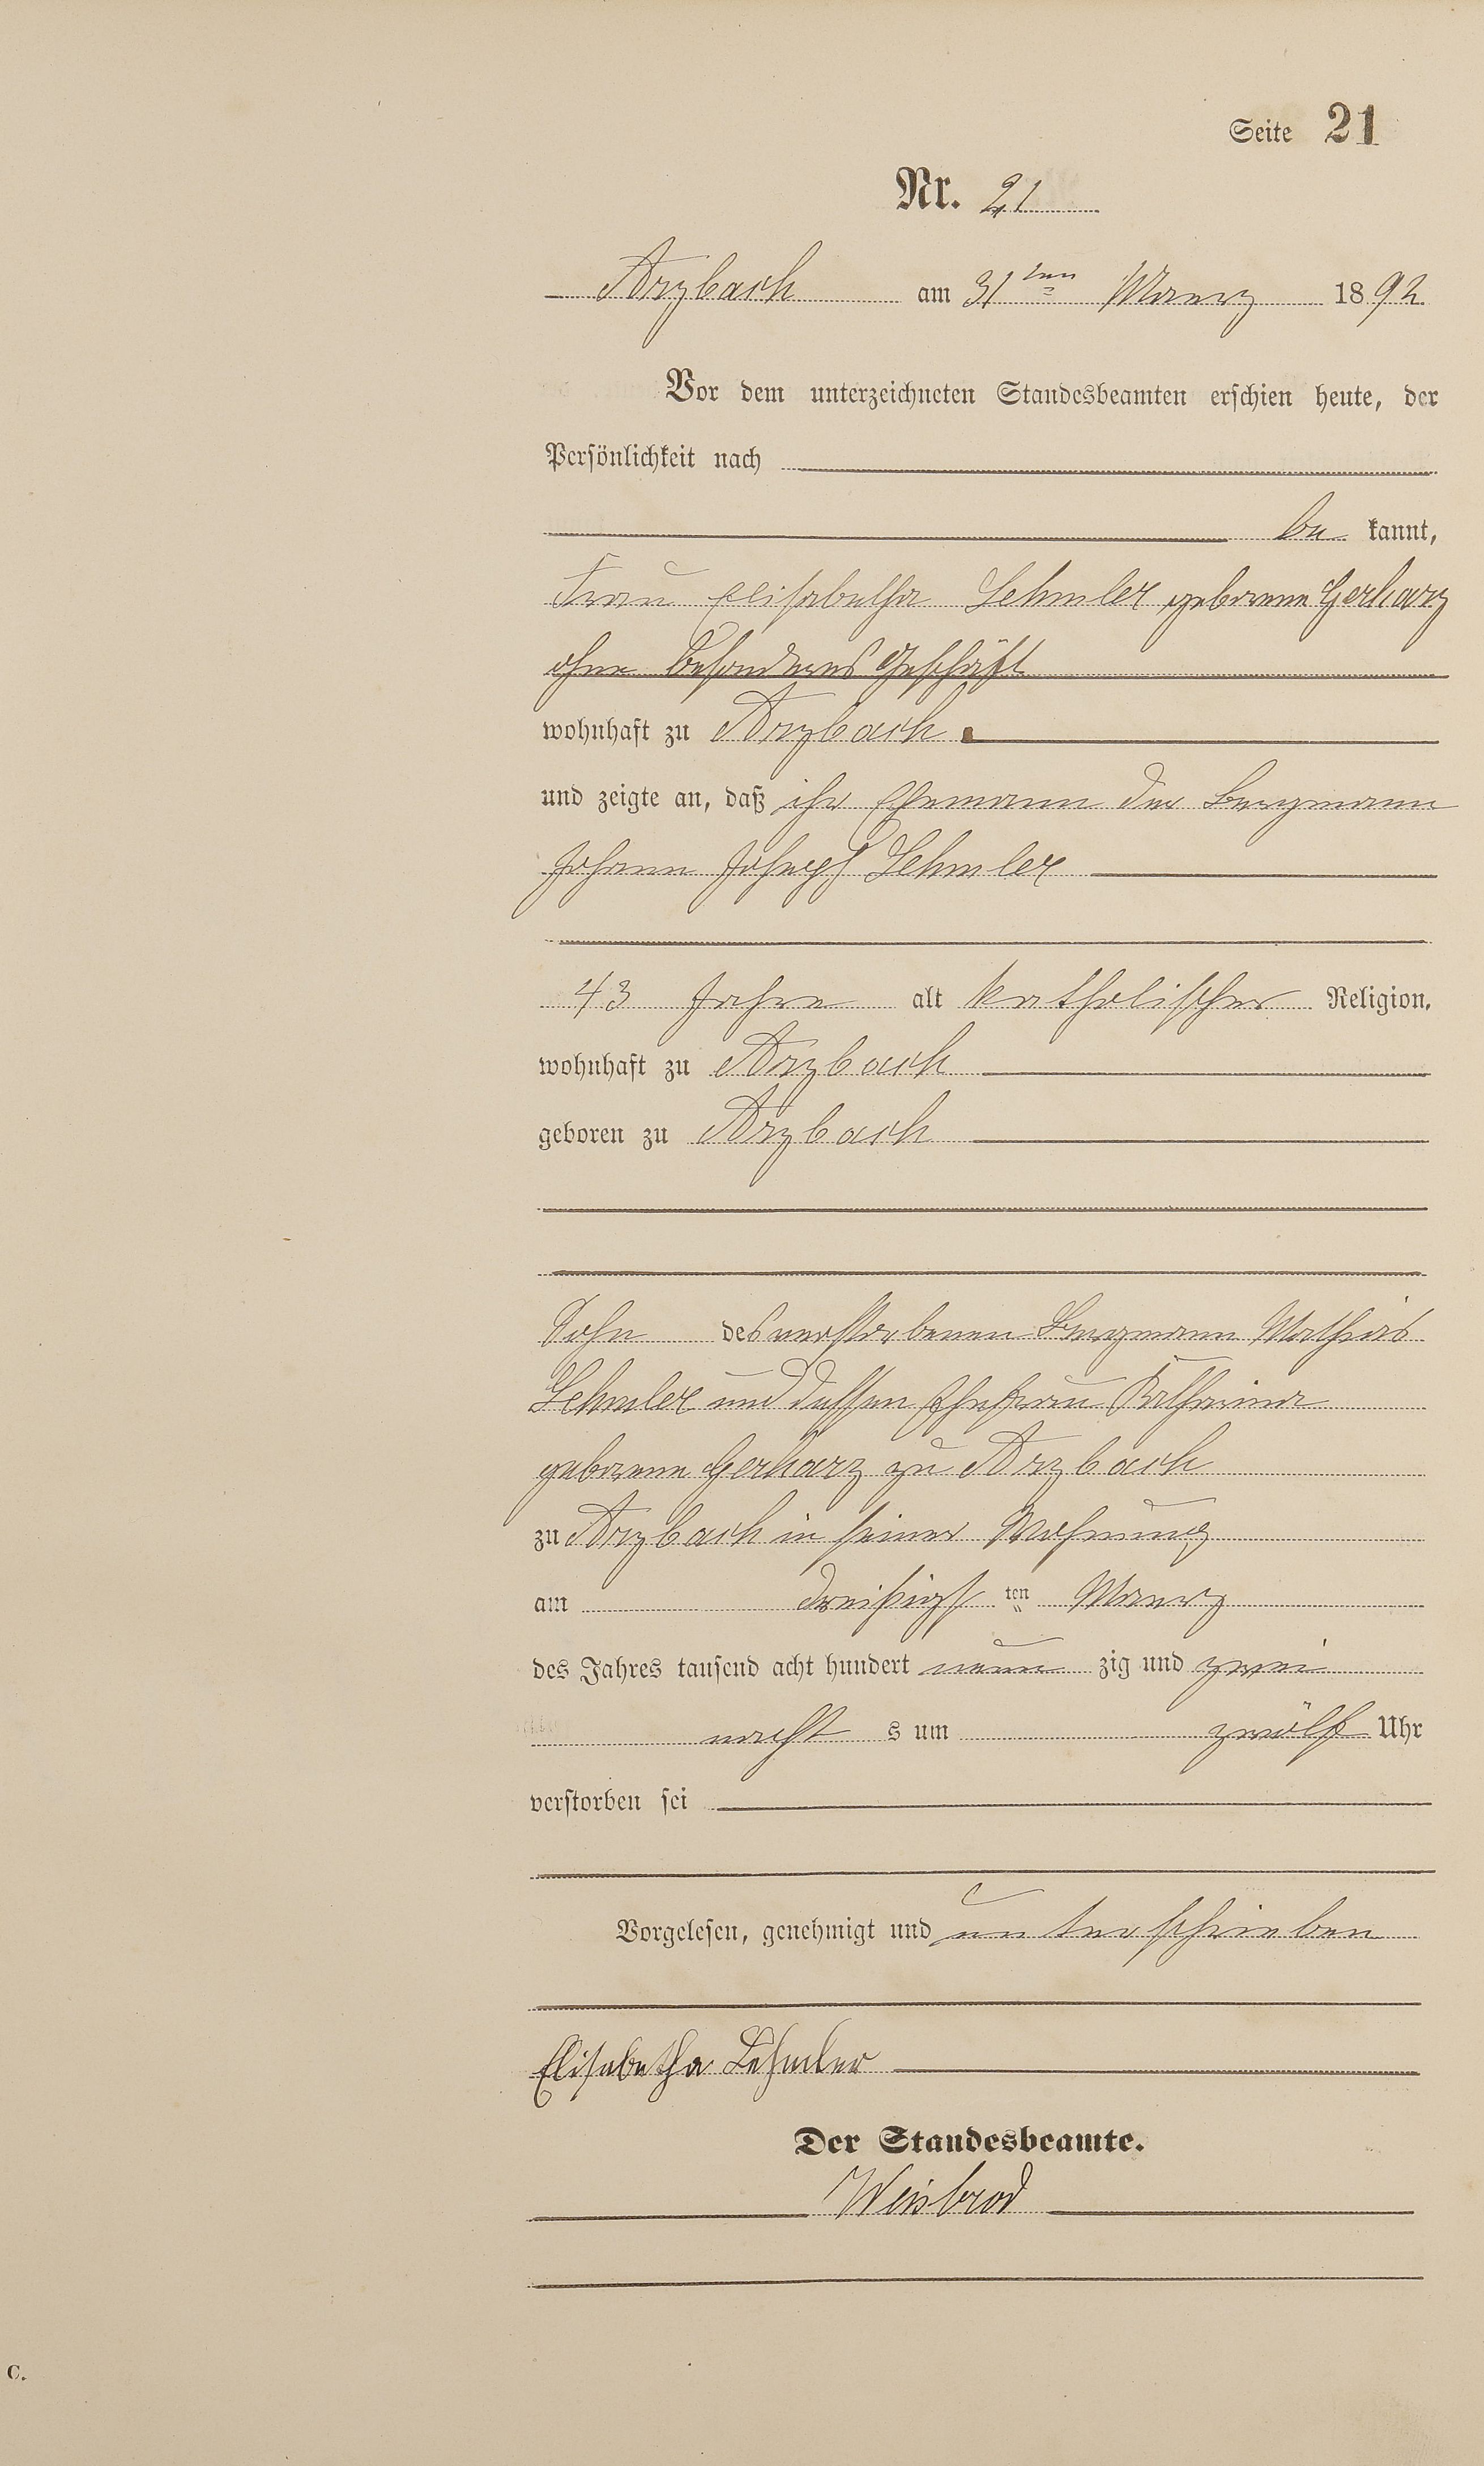 Seite 21
Nr. 21
Arzbach am 31ten Maerz 1892
Vor dem unterzeichneten Standesbeamten erschien heute, der
Persönlichkeit nach
be kannt,
Frau Elisabetha Lehmler geborene Gerharz
ohne besonderes Geschäft
wohnhaft zu Arzbach
und zeigte an, daß ihr Ehemann der Bergmann
Johann Joseph Lehmler
43 Jahre alt katholischer Religion,
wohnhaft zu Arzbach
geboren zu Arzbach
Sohn des verstorbenen Bergmann Mathias
Lehmler und dessen Ehefrau Katharina
geborene Gerharz zu Arzbach
zu Arzbach in seiner Wohnung
am dreißigsten Maerz
des Jahres tausend acht hundert neun zig und zwei
nacht s um zwölf Uhr
verstorben sei
Vorgelesen, genehmigt und unterschrieben
Elisabetha Lehmler
Der Standesbeamte.
Weisbrod
C.